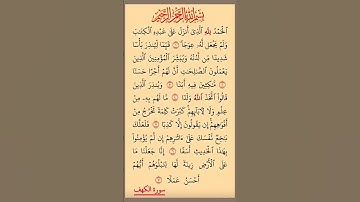 بِسْمِ اللَّهِ الرَّحْمَٰنِ الرَّحِيمِ
ٱلْحَمْدُ لِلَّهِ ٱلَّذِىٓ أَنزَلَ عَلَىٰ عَبْدِهِ ٱلْكِتَٰبَ
وَلَمْ يَجْعَل لَّهُۥ عِوَجَا ۜ ١ قَيِّمًا لِّيُنذِرَ بَأْسًا
شَدِيدًا مِّن لَّدُنْهُ وَيُبَشِّرَ ٱلْمُؤْمِنِينَ ٱلَّذِينَ
يَعْمَلُونَ ٱلصَّٰلِحَٰتِ أَنَّ لَهُمْ أَجْرًا حَسَنًا
٢ مَّٰكِثِينَ فِيهِ أَبَدًا ٣ وَيُنذِرَ ٱلَّذِينَ
قَالُوا۟ ٱتَّخَذَ ٱللَّهُ وَلَدًا ٤ مَّا لَهُم بِهِۦ مِنْ
عِلْمٍ وَلَا لِـَٔابَآئِهِمْ كَبُرَتْ كَلِمَةً تَخْرُجُ مِنْ
أَفْوَٰهِهِمْ إِن يَقُولُونَ إِلَّا كَذِبًا ٥ فَلَعَلَّكَ
بَٰخِعٌ نَّفْسَكَ عَلَىٰٓ ءَاثَٰرِهِمْ إِن لَّمْ يُؤْمِنُوا۟
بِهَٰذَا ٱلْحَدِيثِ أَسَفًا ٦ إِنَّا جَعَلْنَا مَا
عَلَى ٱلْأَرْضِ زِينَةً لَّهَا لِنَبْلُوَهُمْ أَيُّهُمْ
أَحْسَنُ عَمَلًا ٧
سورة الكهف